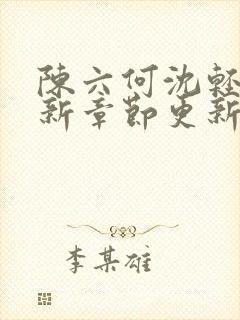 陳六何沈輕
新章節更新
李某雄